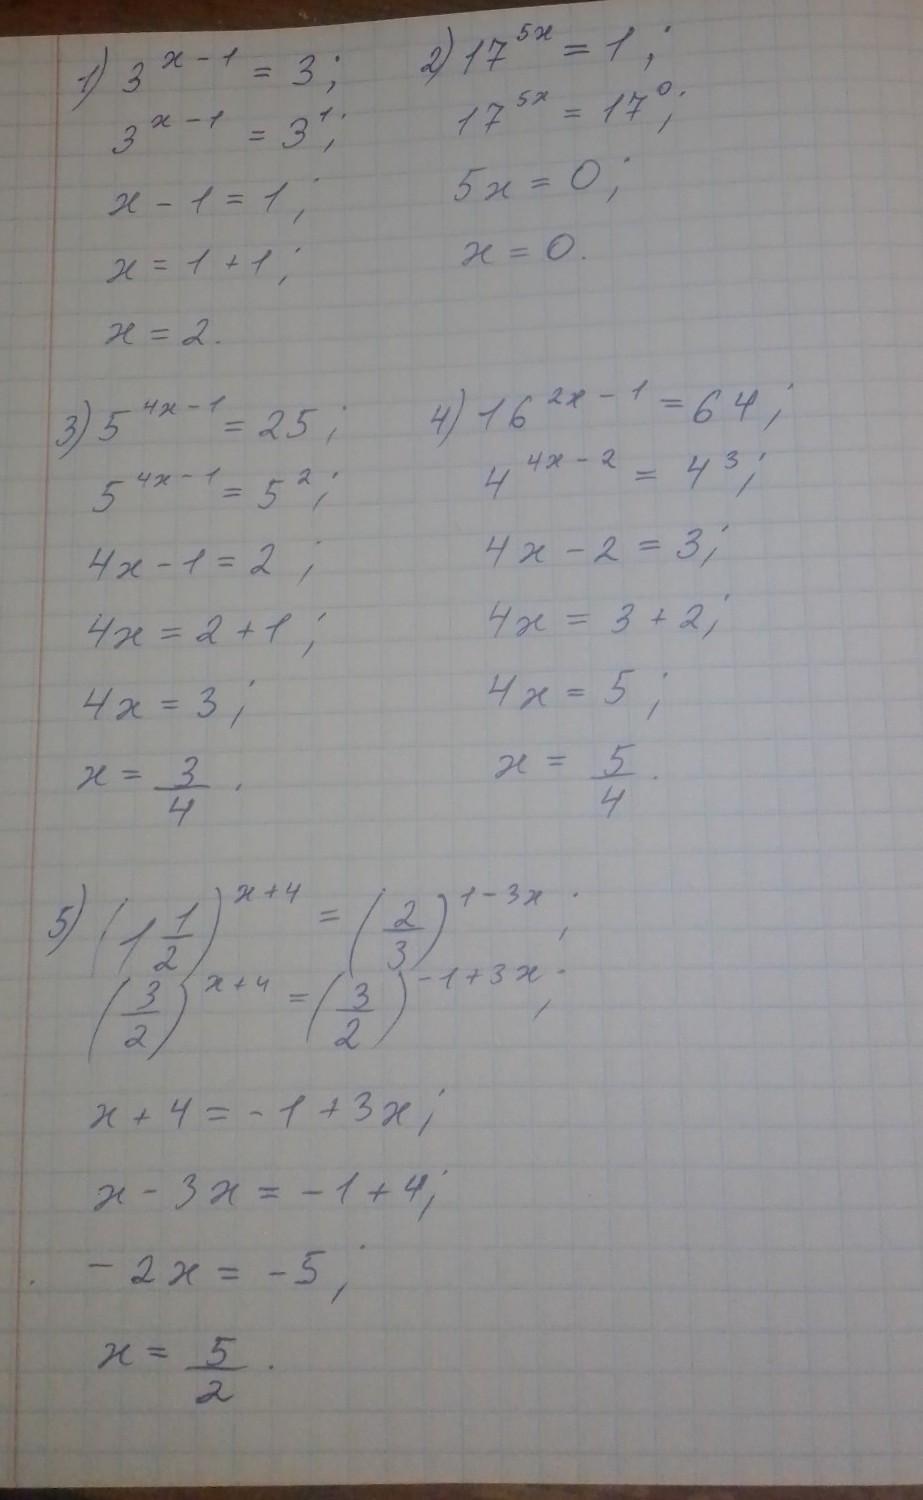 1) 3^(x-1) = 3;
3^(x-1) = 3^1;
x - 1 = 1;
x = 1 + 1;
x = 2.
2) 17^(5x) = 1;
17^(5x) = 17^0;
5x = 0;
x = 0.
3) 5^(4x-1) = 25;
5^(4x-1) = 5^2;
4x - 1 = 2;
4x = 2 + 1;
4x = 3;
x = 3/4.
4) 16^(2x-1) = 64;
4^(4x-2) = 4^3;
4x - 2 = 3;
4x = 3 + 2;
4x = 5;
x = 5/4.
5) (1 1/2)^(x+4) = (2/3)^(1-3x);
(3/2)^(x+4) = (3/2)^(-1+3x);
x + 4 = -1 + 3x;
x - 3x = -1 + 4;
-2x = -5;
x = 5/2.